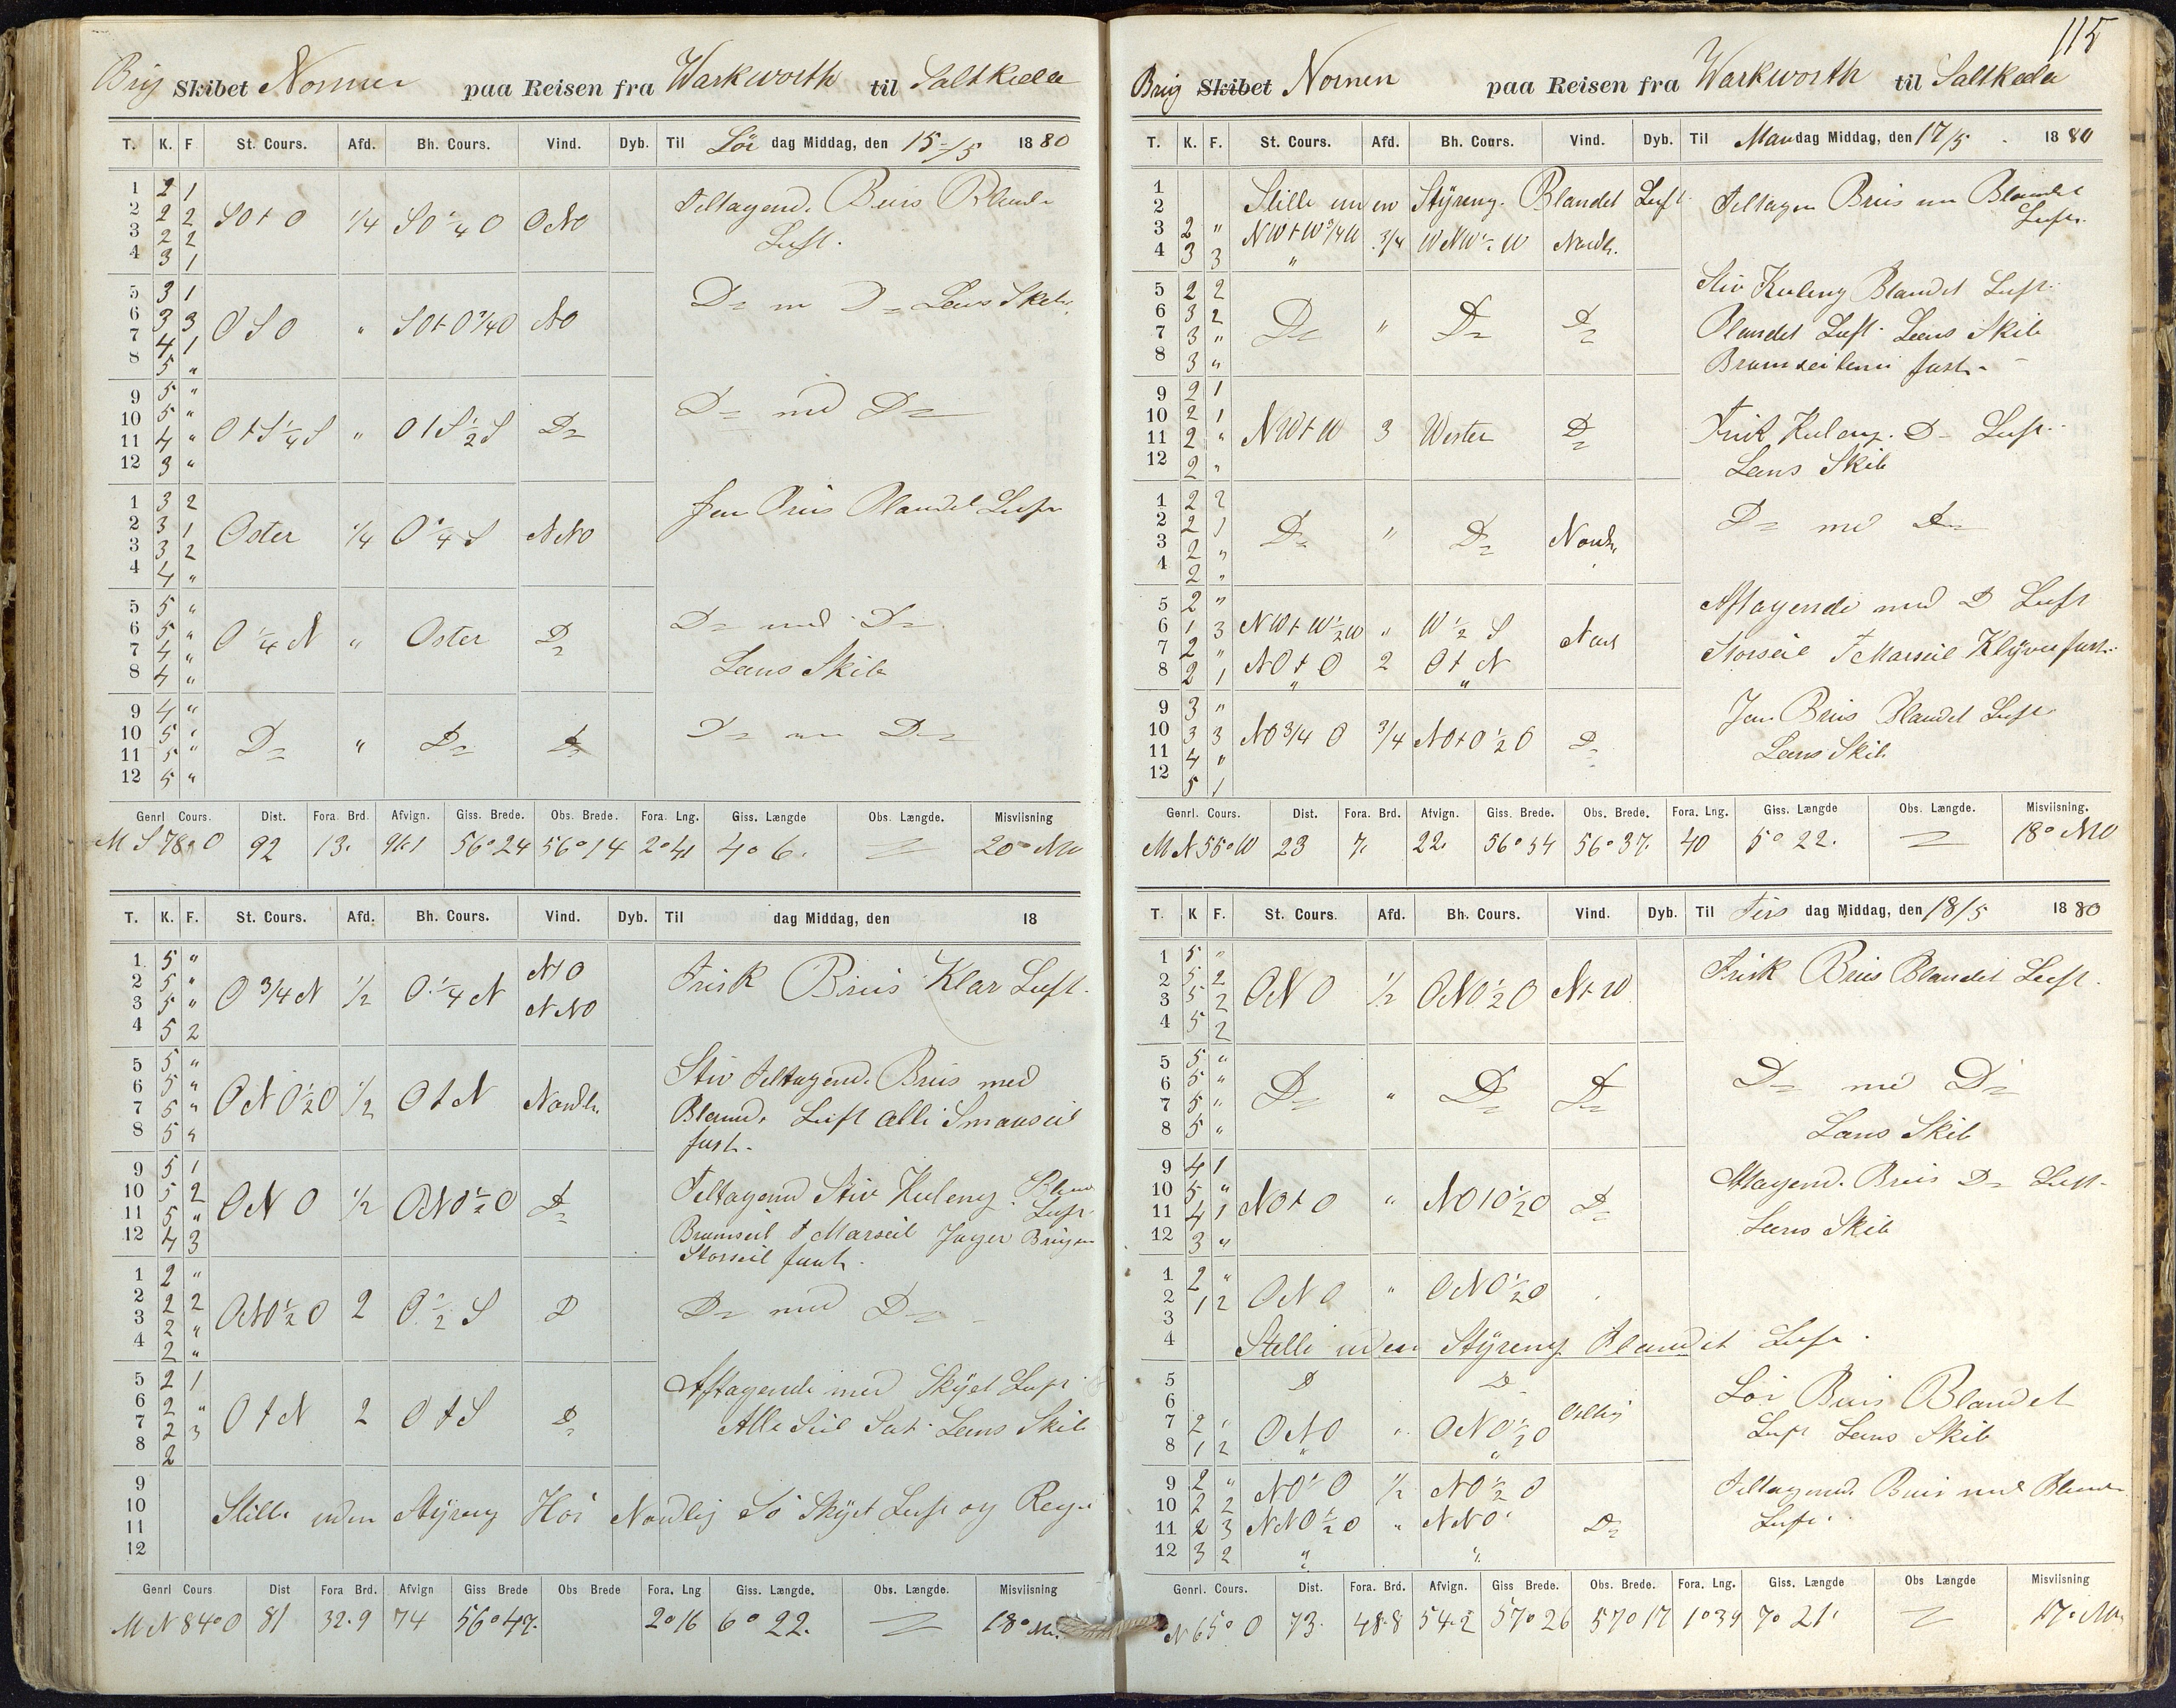 Brig Skibet Nornen paa Reisen fra Warkworth til Saltkeela
T. K. F St. Cours. Afd. Bh. Cours. Vind. Dyb. Til Lör dag Middag, den 15/5 1880
1 2 1
2 2 2 SO t O 1/4 SO 1/4 O ONO Teltagend. Bris Blande
3 2 2 Luft.
4 3 1
5 3 1 D= m D= Lens Skib
6 3 3 OSO " SO t O 3/4 O NO
7 4 1
8 5 "
9 5 "
10 5 " D= md D=
11 4 " O t S 1/4 S " O t S 1/2 S D=
12 3 "
1 3 2 Jen Bris Blandet Luft
2 3 1 Oster 1/4 O 1/4 S NNO
3 3 2
4 4 "
5 5 "
6 5 " O 1/4 N " Oster D= D= med D=
7 4 "
8 4 " Lens Skib
9 4 "
10 5 " D= " D= D= D= m D=
11 5 "
12 5 "
Genrl Cours. Dist. Fora. Brd. Afvign. Giss. Brede. Obs. Brede. Fora. Lng. Giss. Længde Obs. Længde. Misviisning
M S 78° O 92 13. 91.1 56° 24 56° 14 2° 41 4° 6. 20° NW
T. K. F. St. Cours. Afd. Bh. Cours. Vind. Dyb. Til dag Middag, den 18
1 5 " NO
2 5 " O 3/4 N 1/2 O 1/4 N Frisk Bris Klar Luft.
3 5 " NNO
4 5 2
5 5 " Stiv Teltagend. Bris med
6 5 " ONO 1/2 O 1/2 O t N Nordl.
7 5 " Bland. Luft alli Smaaseil
8 5 " fast.
9 5 1
10 5 2 ONO 1/2 ONO 1/2 O D= Teltagend Stiv Kuleng Bland
11 5 " Luft
12 4 3 Bramseil t Marseil Jager Brigen
Storseil fast.
1 2 "
2 2 2 ONO 1/2 O 2 O 1/2 S D D= med D=
3 2 "
4 2 "
5 2 1 Aftagende med Skyet Luft
6 2 "
7 2 3 O t N 2 O t S D= Alle Seil Sat. Lens Skib
8 2
9
10 Stille uden Styreng Höi Nordlig Sö Skyet Luft og Regn
11
12
Genrl Cours Dist Fora Brd. Afvign Giss Brede Obs Brede Fora. Lng Giss. Længde. Obs. Længde. Misviisning
M N 84° O 81 32.9 74 56° 47. 2° 16 6° 22. 18°
115
Brig Skibet Nornen paa Reisen fra Warkworth til Saltkeela
T. K. F. St. Cours. Afd. Bh. Cours. Vind. Dyb. Til Mandag Middag, den 17/5 1880
1 Stille uden Styreng. Blandet Luft
2 Teltagen Bris m Blandet
3 2 " NW t W 3/4 W 3/4 WNW 1/2 W Nordl. Luft.
4 3 3 "
5 2 2 Stiv Kuleng Blandet Luft.
6 3 2 D= " D= D=
7 3 " Blandet Luft. Lens Skib
8 3 " Bramseilene fast.
9 2 1
10 2 1
11 2 " NW t W 3 Wester D= Frisk Kuleng. D= Luft.
12 2 " Lens Skib
1 2 2
2 2 1 D= " D= Nordl. D= md D=
3 2 "
4 2 "
5 2 " Aftagende med D Luft
6 1 3 NW t W 1/2 W " W 1/2 S Nord
7 2 " Storseil t Marseil Klyver fast.
8 2 1 NO t O 2 O t N
9 3 " Jen Bris Blandet Luft
10 3 3 NO 3/4 O 3/4 NO t O 1/2 O D=
11 4 " Lens Skib
12 5 1
Genrl. Cours. Dist. Fora. Brd. Afvign. Giss. Brede. Obs. Brede. Fora. Lng. Giss. Længde Obs. Længde. Misviisning.
M N 55° W 23 7. 22. 56° 54 56° 37. 40 5° 22. 18° NW
T. K F. St. Cours. Afd. Bh. Cours. Vind. Dyb. Til Tirs dag Middag, den 18/5 1880
1 5 " Frisk Bris Blandet Luft.
2 5 2 ONO 1/2 ONO 1/2 O N t W
3 5 2
4 5 2
5 5 "
6 5 " D= " D= D= D= md D=
7 5 "
8 5 " Lens Skib
9 4 1 Aftagend. Bris D= Luft.
10 5 " NO t O " NO t O 1/2 O D=
11 4 1
12 3 " Lens Skib
1 2 "
2 1 2 ONO " ONO 1/2 O
3
4 Stille uden Styreng Blandet Luft.
5 D D
6 Löi Bris Blandet
7 2 " ONO " ONO 1/2 O Ostlig
8 1 2 " " Luft Lens Skib
9 2 " NO 1/2 O 1/2 NO 1/2 O Teltagend. Bris med Blande
10 2 2
11 2 3 NNO 1/2 O " NNO D= Luft.
12 3 2 " "
Genrl. Cours. Dist. Fora. Brd. Afvign. Giss Brede. Obs. Brede. Fora. Lng. Giss. Længde Obs Længde Misviisning
N 65° O 73. 48.8 54.2 57° 26 57° 17 1° 39 7° 21. 17°